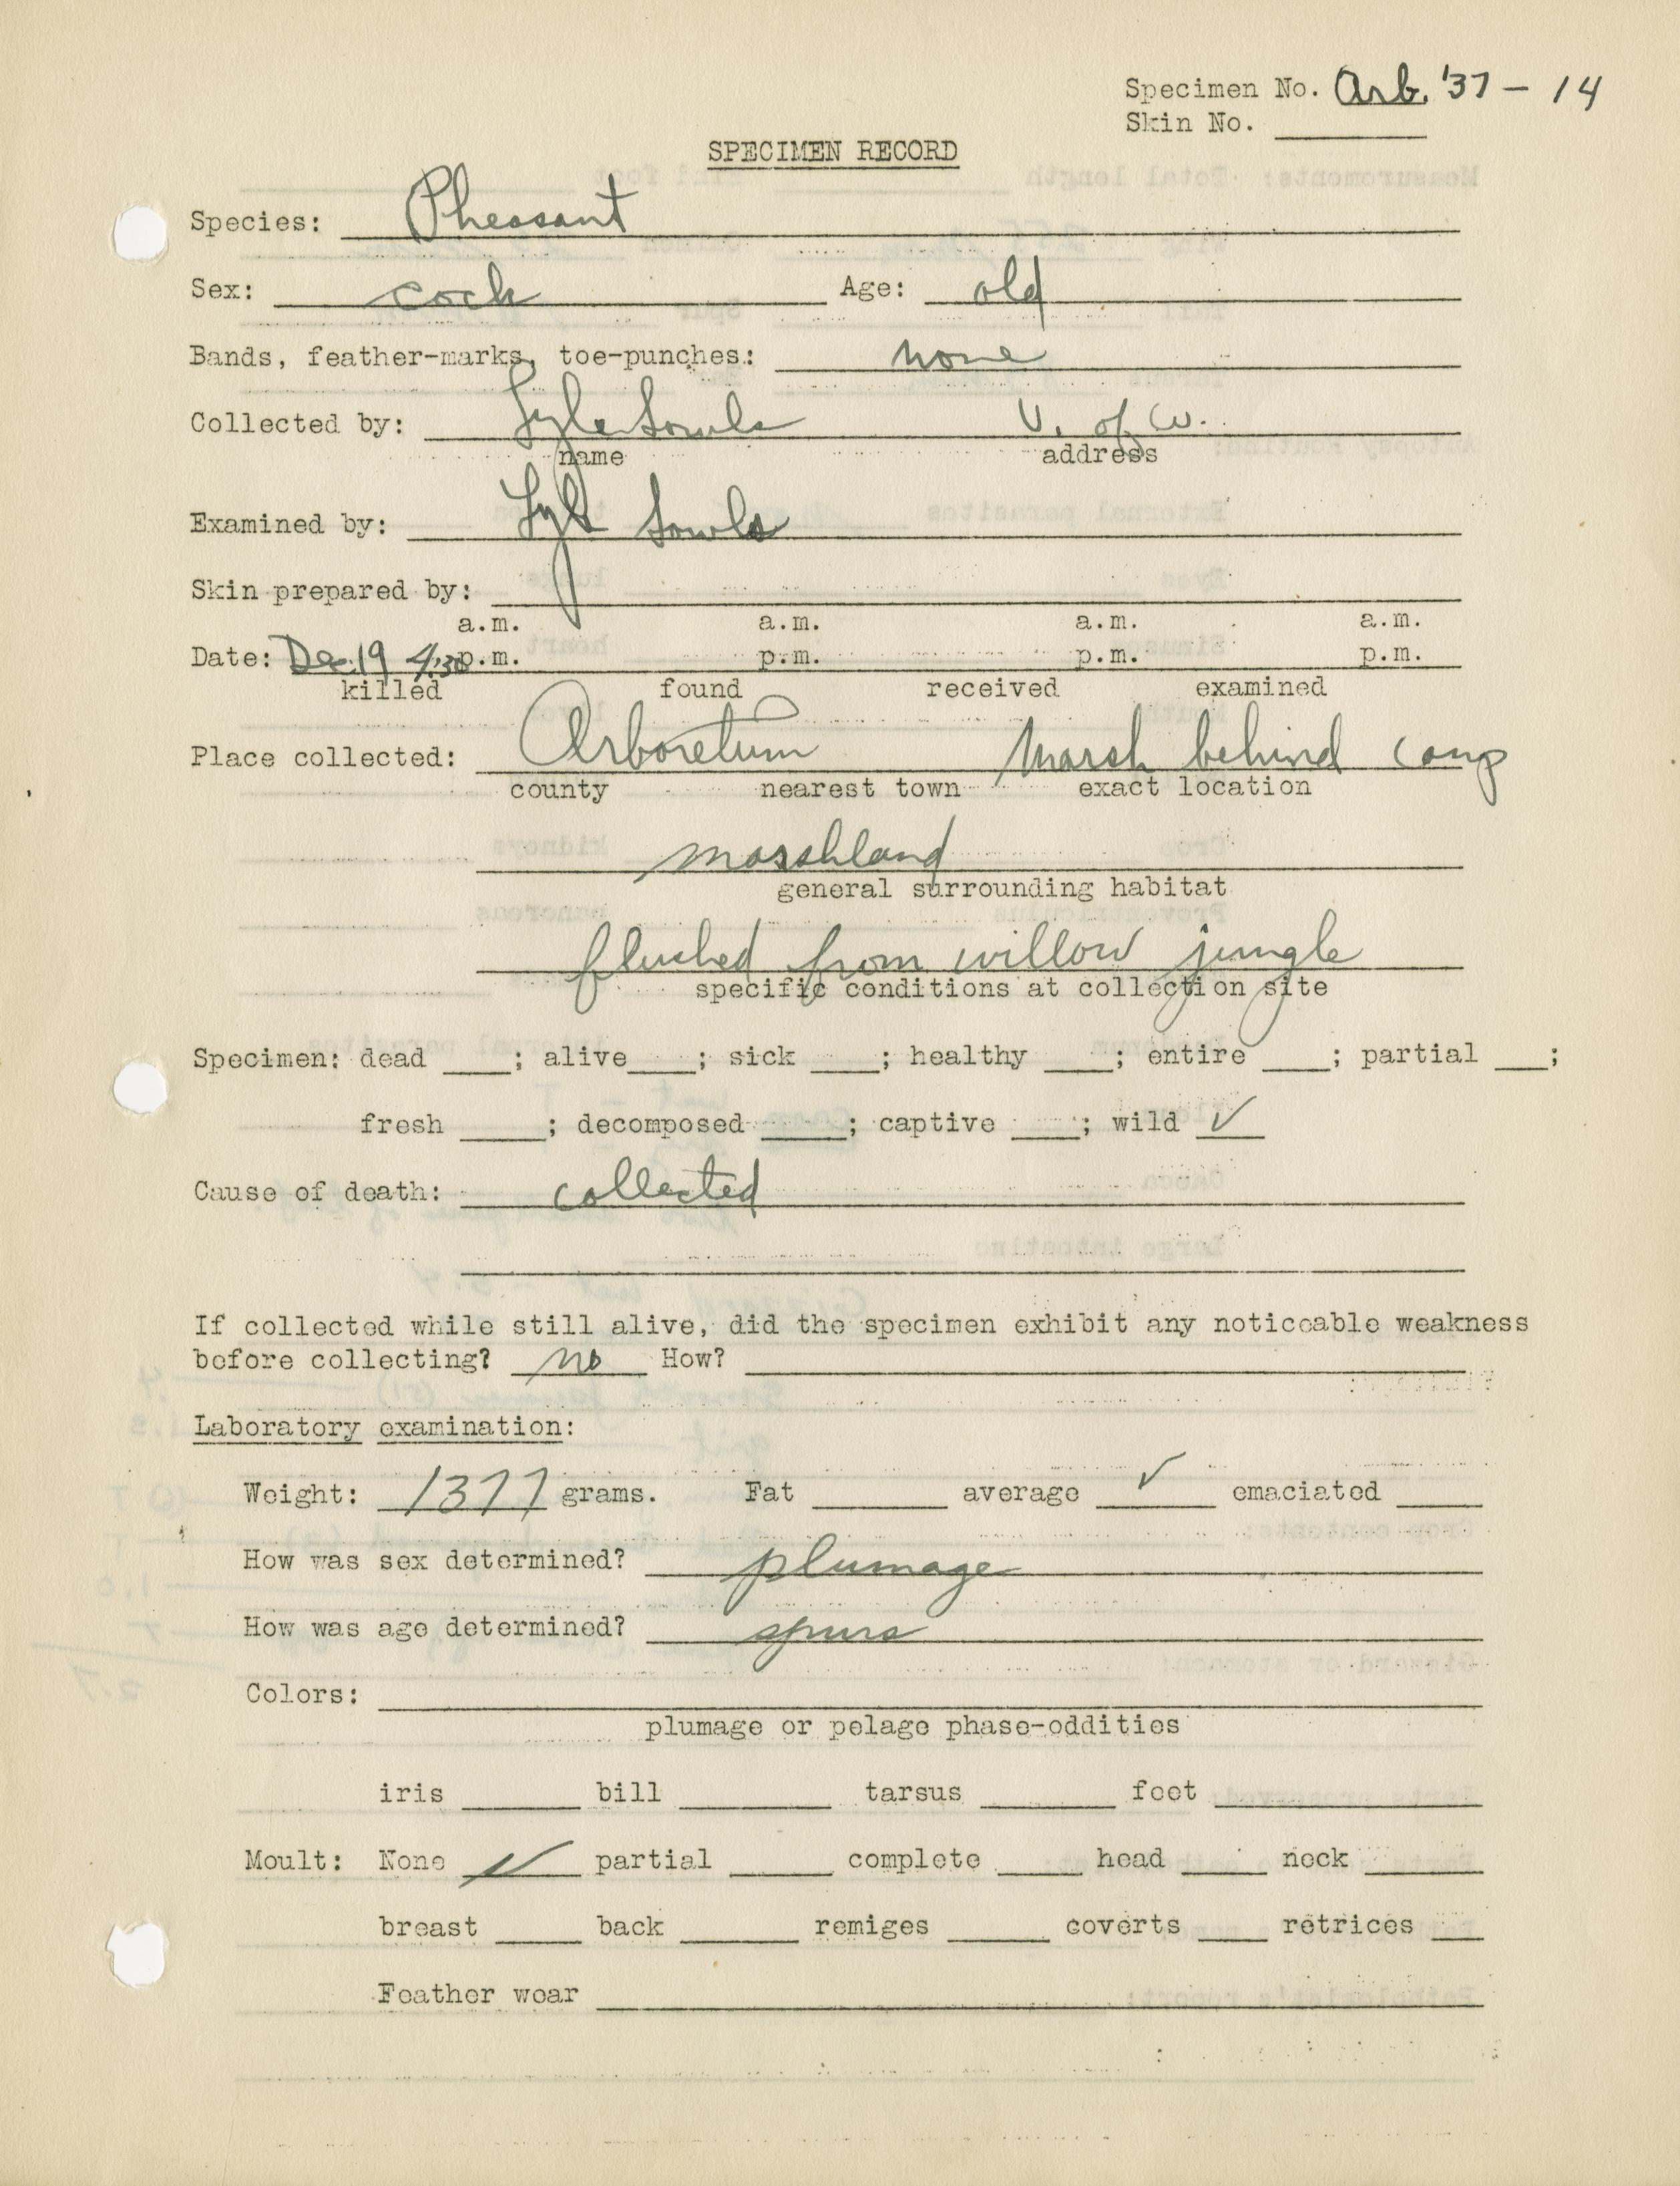 Specimen No. Arb. '37 - 14
Skin No. ____
SPECIMEN RECORD
Species: Pheasant
Sex: cock Age: old
Bands, feather-marks, toe-punches: none
Collected by: Lyle Sowls U. of W.
name address
Examined by: Lyle Sowls
Skin prepared by: ____
a.m. a.m. a.m. a.m.
Date: Dec. 19 4:30 p.m. p.m. p.m. p.m.
killed found received examined
Place collected: Arboretum Marsh behind camp
county nearest town exact location
marshland
general surrounding habitat
flushed from willow jungle
specific conditions at collection site
Specimen: dead ____; alive ____; sick ____; healthy ____; entire ____; partial ____;
fresh ____; decomposed ____; captive ____; wild ✓
Cause of death: collected
If collected while still alive, did the specimen exhibit any noticeable weakness
before collecting? no How? ____
Laboratory examination:
Weight: 1377 grams. Fat ____ average ✓ emaciated ____
How was sex determined? plumage
How was age determined? spurs
Colors: ____
plumage or pelage phase-oddities
iris ____ bill ____ tarsus ____ feet ____
Moult: None ✓ partial ____ complete ____ head ____ neck ____
breast ____ back ____ remiges ____ coverts ____ retrices ____
Feather wear ____